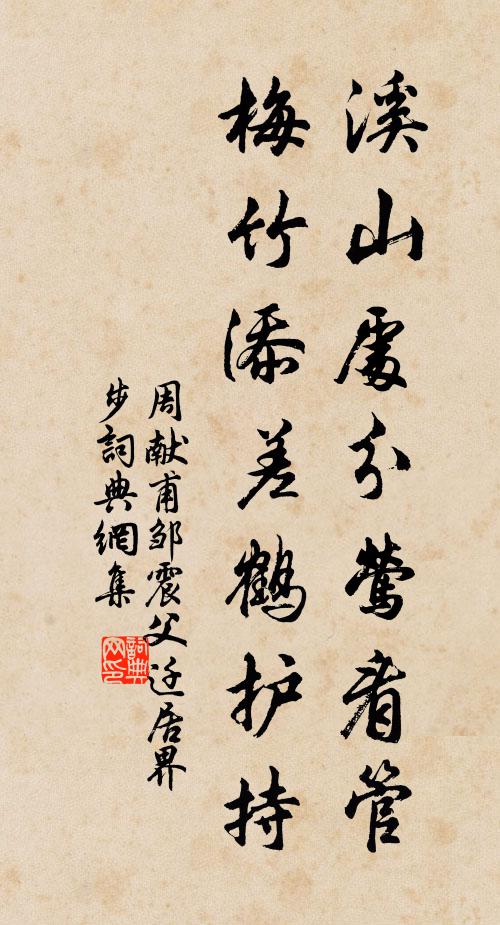 溪山處分莺看管
梅竹添差鶴护持
周献甫邹震父迁居界
步詞典網集
詞典网印